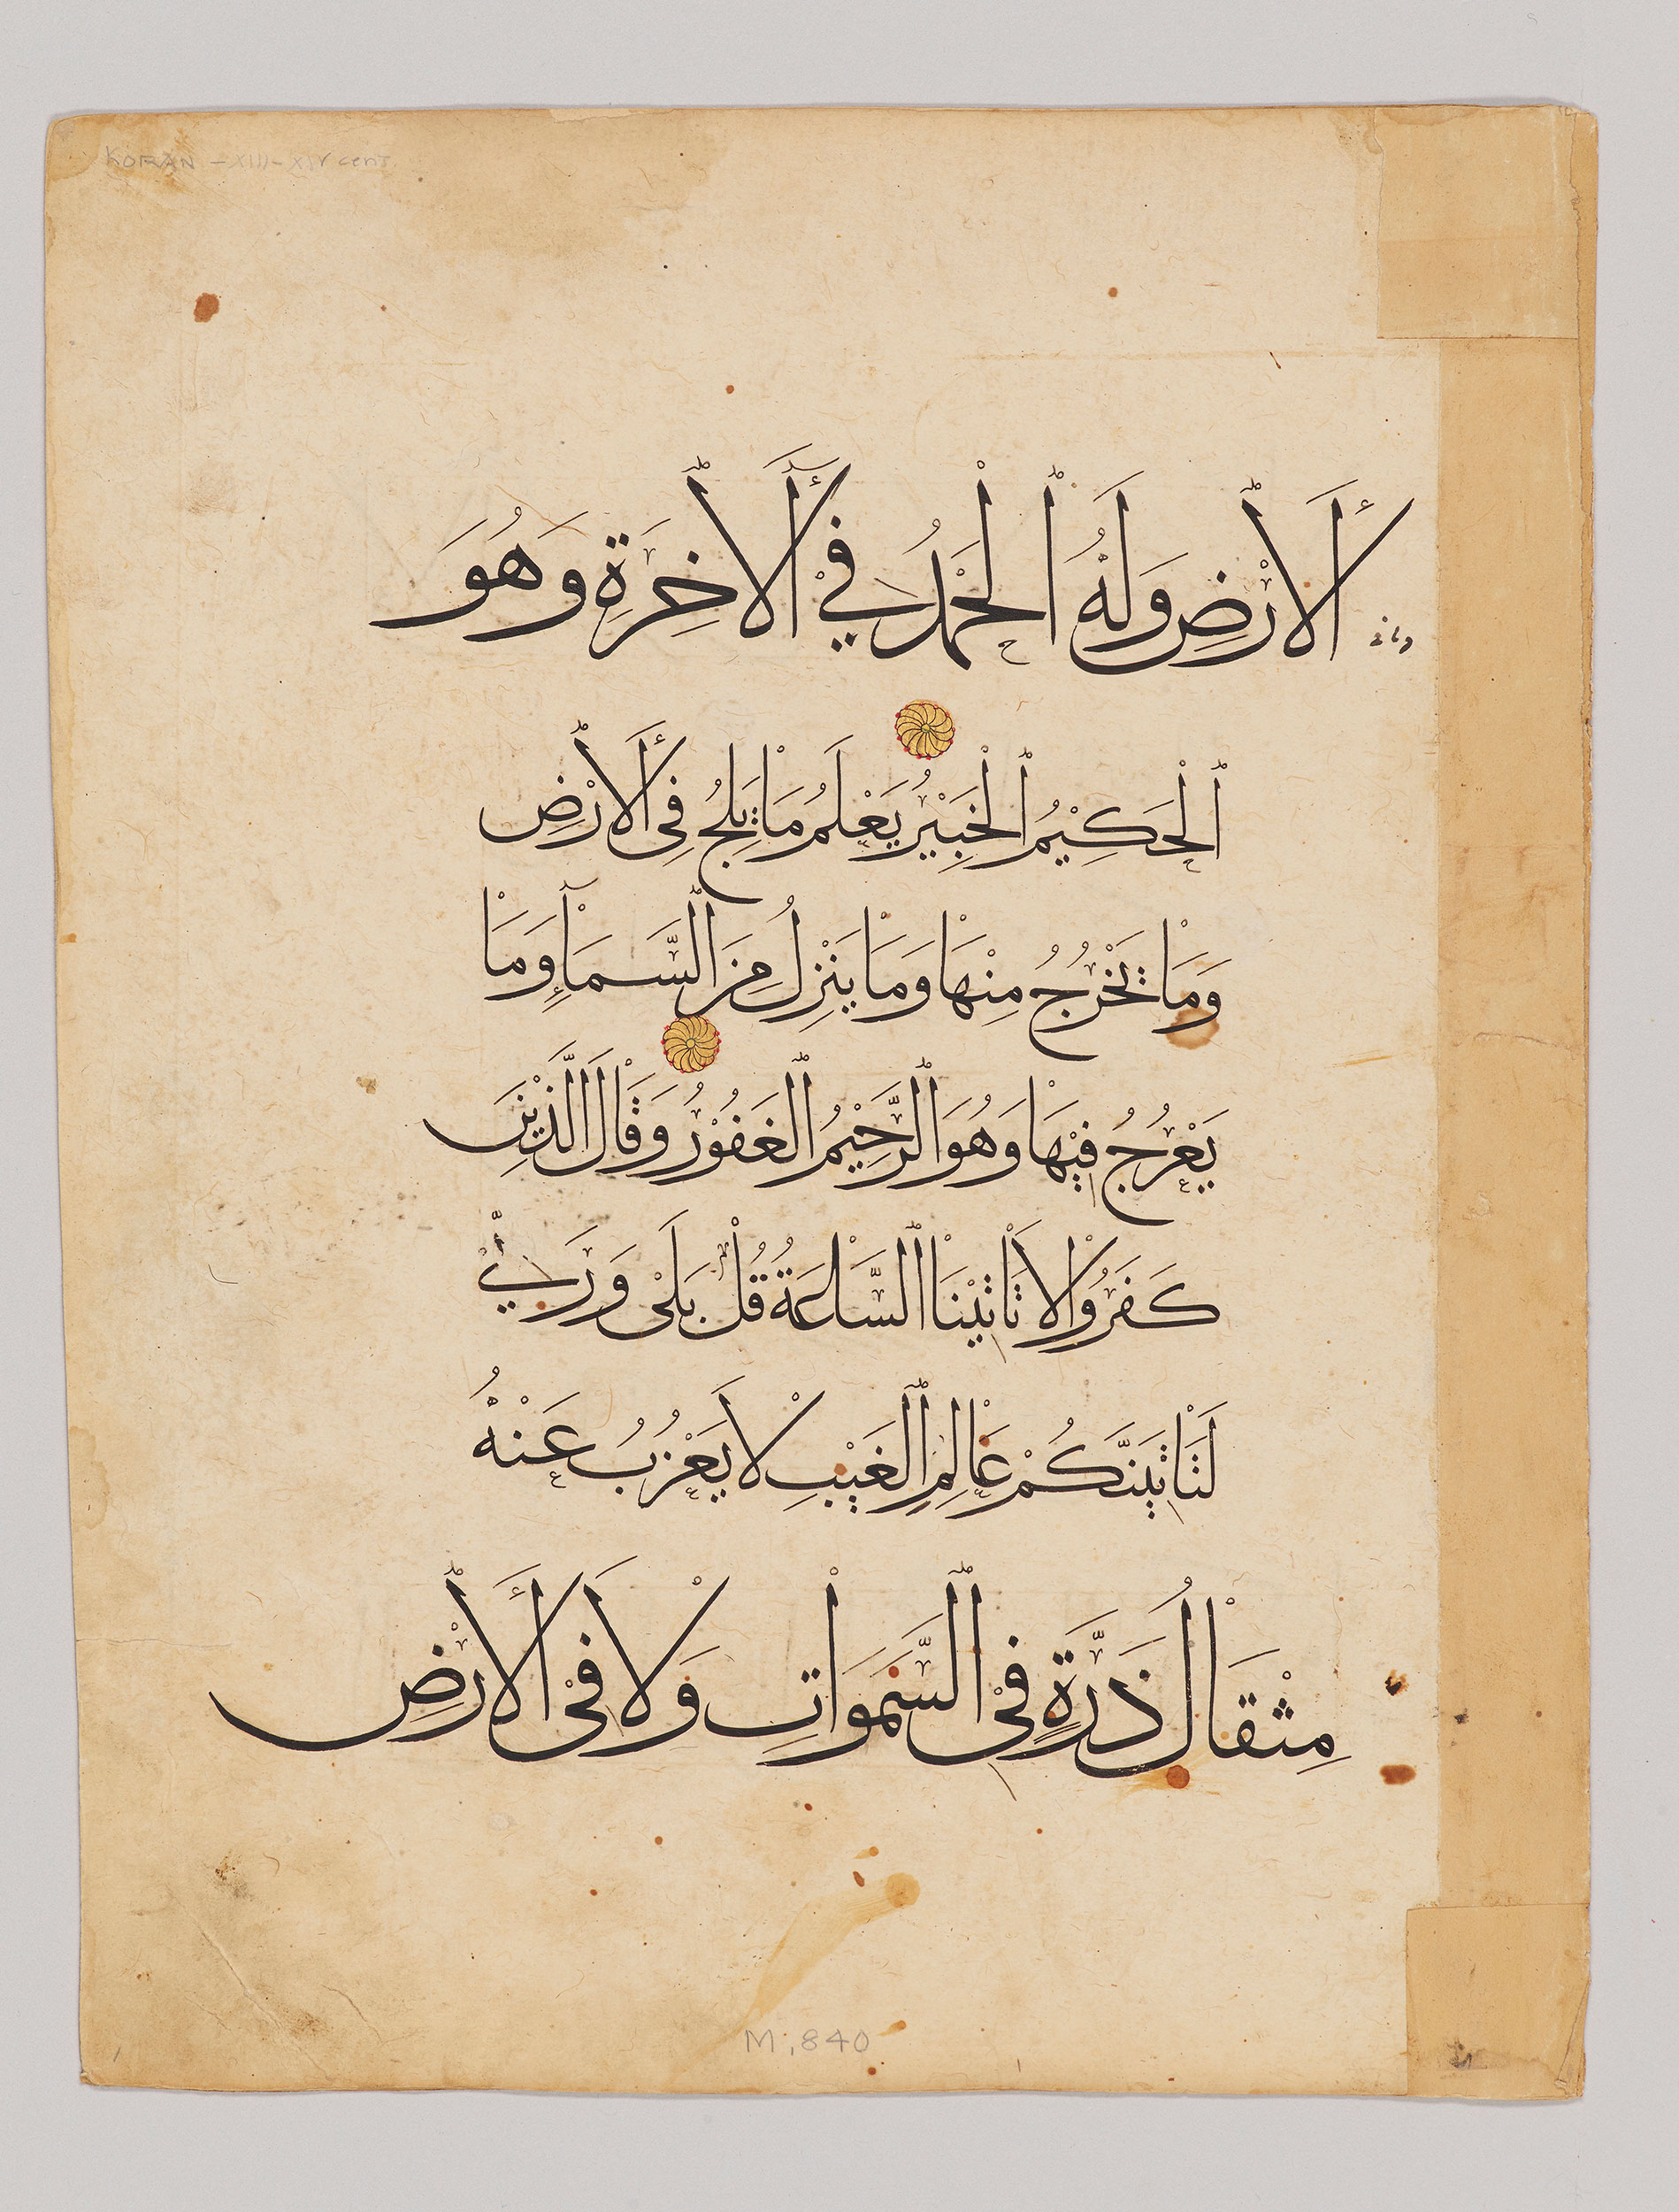 KORAN - XIII - XIV cent.
ٱلْأَرْضِ وَلَهُ ٱلْحَمْدُ فِي ٱلْأٓخِرَةِ وَهُوَ
وما فى
ٱلْحَكِيْمُ ٱلْخَبِيْرُ يَعْلَمُ مَا يَلِجُ فِى ٱلْأَرْضِ
وَمَا يَخْرُجُ مِنْهَا وَمَا يَنْزِلُ مِنَ ٱلسَّمَآءِ وَمَا
يَعْرُجُ فِيْهَا وَهُوَ ٱلرَّحِيْمُ ٱلْغَفُوْرُ وَقَالَ ٱلَّذِيْنَ
كَفَرُوْا لَا تَاتِيْنَا ٱلسَّاعَةُ قُلْ بَلَى وَرَبِّيْ
لَتَاتِيَنَّكُمْ عَالِمِ ٱلْغَيْبِ لَا يَعْزُبُ عَنْهُ
مِثْقَالُ ذَرَّةٍ فِى ٱلسَّمَوَاتِ وَلَا فِى ٱلْأَرْضِ
M.840